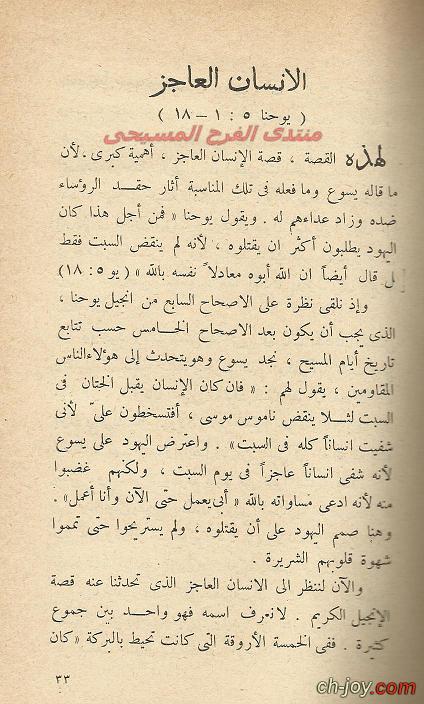 الانسان العاجز
( يوحنا ٥ : ١ – ١٨ )
منتدى الفرح المسيحى
لهذه القصة ، قصة الإنسان العاجز ، أهمية كبرى . لأن
ما قاله يسوع وما فعله فى تلك المناسبة أثار حقد الرؤساء
ضده وزاد عداءهم له . ويقول يوحنا « فمن أجل هذا كان
اليهود يطلبون أكثر ان يقتلوه ، لأنه لم ينقض السبت فقط
بل قال أيضاً ان الله أبوه معادلاً نفسه بالله » ( يو ٥ : ١٨ )
وإذ نلقى نظرة على الاصحاح السابع من انجيل يوحنا ،
الذى يجب أن يكون بعد الاصحاح الخامس حسب تتابع
تاريخ أيام المسيح ، نجد يسوع وهويتحدث إلى هؤلاءالناس
المقاومين ، يقول لهم : « فان كان الإنسان يقبل الختان فى
السبت لئلا ينقض ناموس موسى ، أفتسخطون علىّ لأنى
شفيت انساناً كله فى السبت» . واعترض اليهود على يسوع
لأنه شفى انساناً عاجزاً فى يوم السبت ، ولكنهم غضبوا
منه لأنه ادعى مساواته بالله «أبى يعمل حتى الآن وأنا أعمل» .
وهنا صمم اليهود على أن يقتلوه ، ولم يستريحوا حتى تمموا
شهوة قلوبهم الشريرة .
والآن لننظر الى الانسان العاجز الذى تحدثنا عنه قصة
الإنجيل الكريم . لانعرف اسمه فهو واحد بين جموع
كثيرة . ففى الخمسة الأروقة التى كانت تحيط بالبركة « كان
٣٣
ch-joy.com